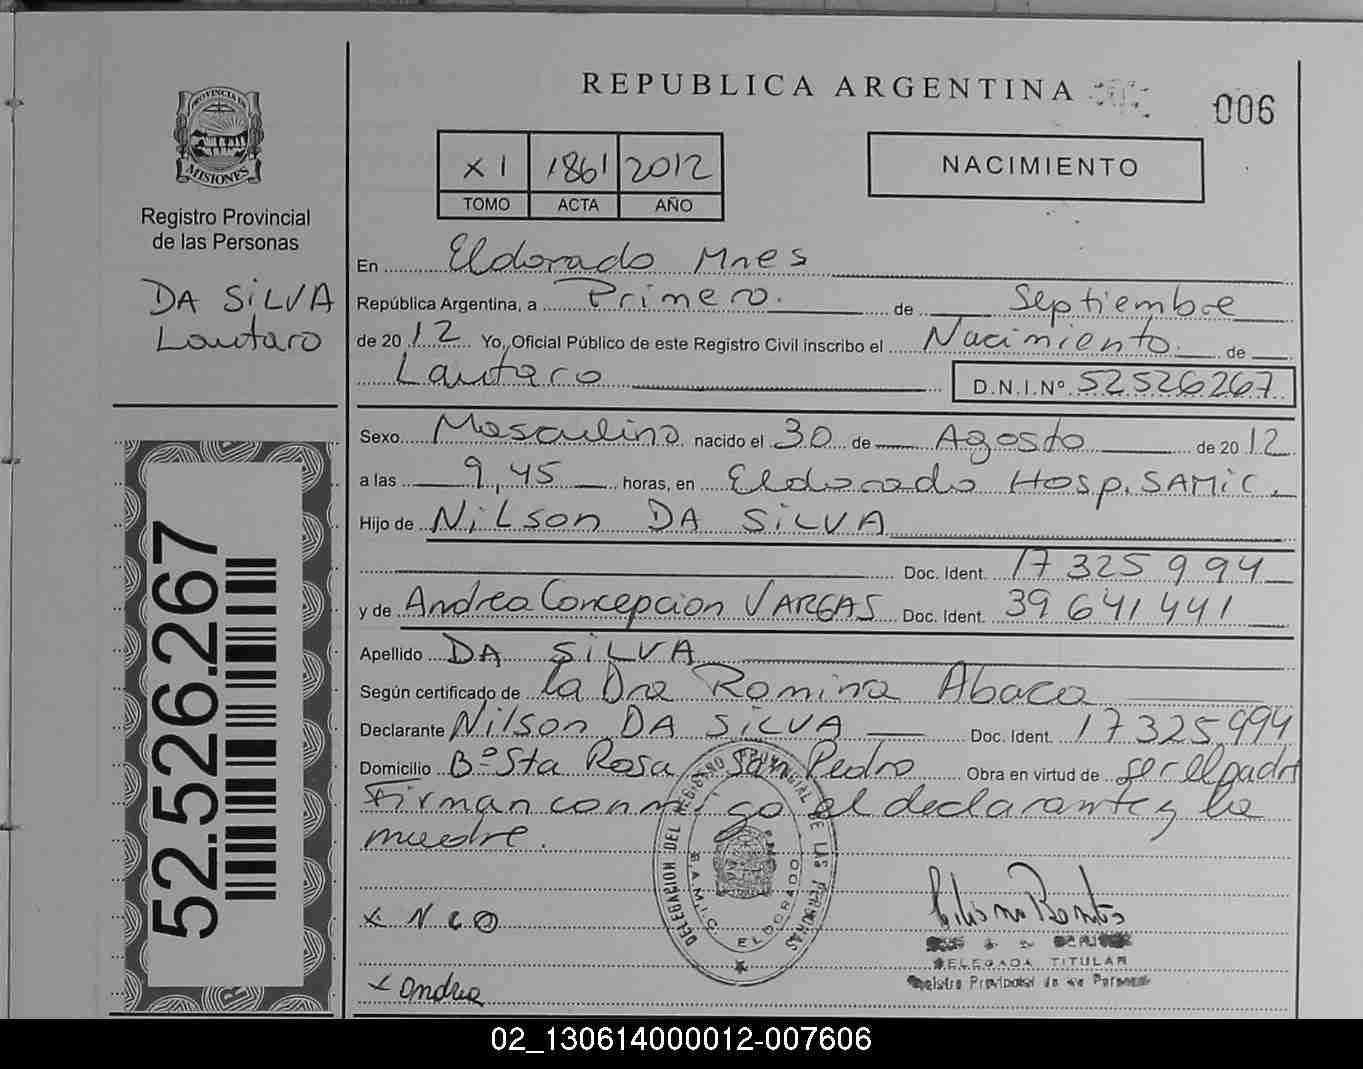 REPUBLICA ARGENTINA
006
PROVINCIA DE
MISIONES
Registro Provincial
de las Personas
DA SILVA
Lautaro
52.526.267
XI 1861 2012
TOMO ACTA AÑO
NACIMIENTO
En Eldorado Mnes
República Argentina, a Primero. de Septiembre
de 2012 Yo, Oficial Público de este Registro Civil inscribo el Nacimiento de
Lautaro D.N.I.Nº 52526267
Sexo Masculino nacido el 30 de Agosto de 2012
a las 9,45 horas, en Eldorado Hosp. SAMIC.
Hijo de Nilson DA SILVA
Doc. Ident. 17 325 994
y de Andrea Concepcion VARGAS Doc. Ident. 39 641 441
Apellido DA SILVA
Según certificado de la Dra Romina Abaca
Declarante Nilson DA SILVA Doc. Ident. 17 325 994
Domicilio Bº Sta Rosa San Pedro Obra en virtud de ser el padre
Firman conmigo el declarante y la
madre.
DELEGACION DEL REGISTRO PROVINCIAL DE LAS PERSONAS
S.A.M.I.C. ELDORADO
x N
DELEGADA TITULAR
Registro Provincial de las Personas
x andrea
02_130614000012-007606